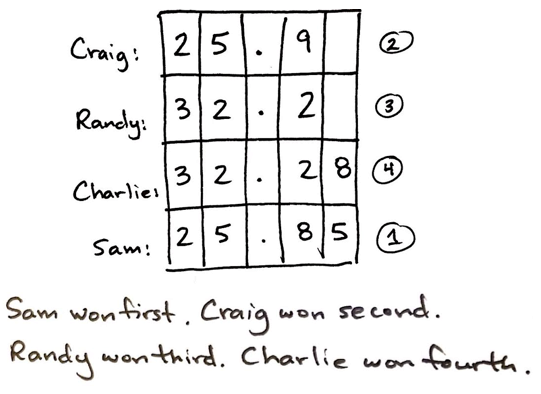 Craig: 25.9 ②
Randy: 32.2 ③
Charlie: 32.28 ④
Sam: 25.85 ①
Sam won first. Craig won second.
Randy won third. Charlie won fourth.